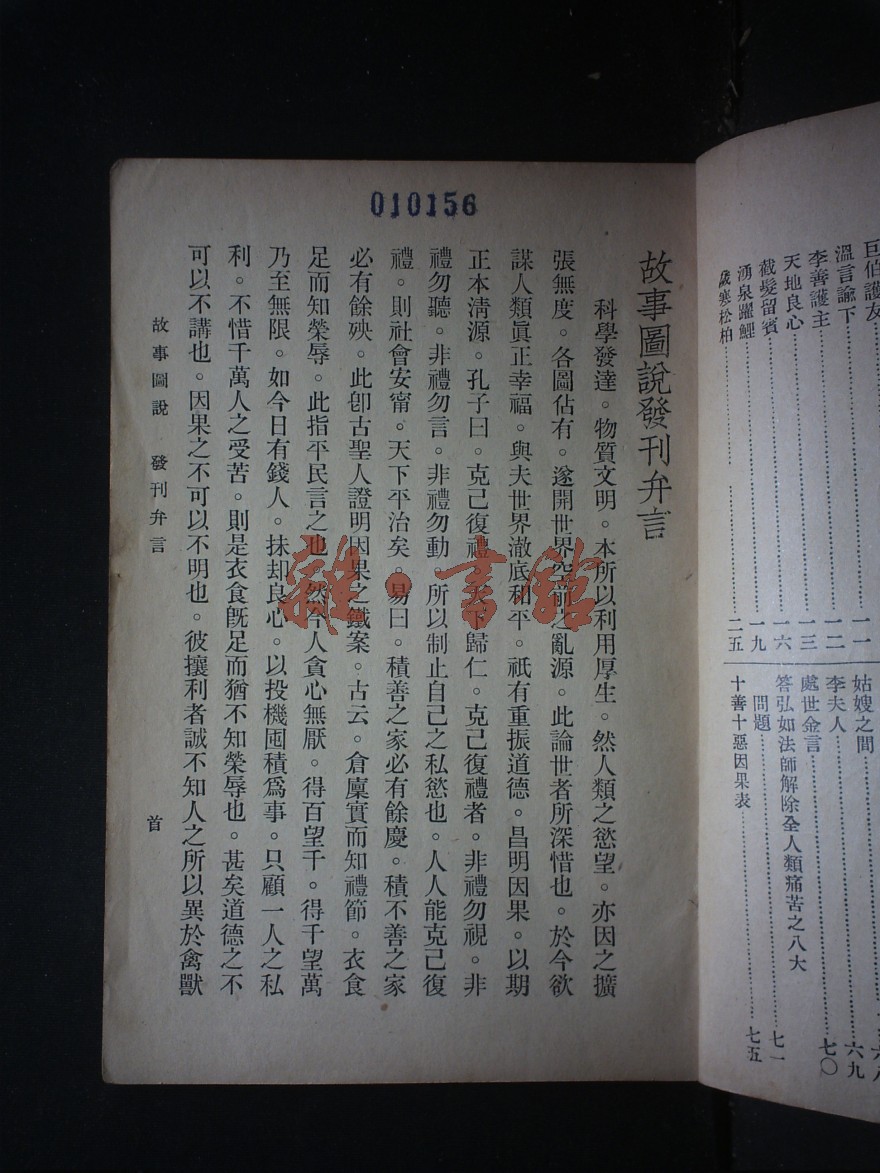 巨伯護友
溫言諭下………一一
李善護主………一二
天地良心………一三
截髮留賓………一六
湧泉躍鯉………一九
歲寒松柏………二五
姑嫂之間………六九
李夫人………七〇
處世金言
答弘如法師解除全人類痛苦之八大
問題………七一
十善十惡因果表………七五
010156
故事圖說發刊弁言
科學發達。物質文明。本所以利用厚生。然人類之慾望。亦因之擴
張無度。各圖佔有。遂開世界空前之亂源。此論世者所深惜也。於今欲
謀人類眞正幸福。與夫世界澈底和平。祇有重振道德。昌明因果。以期
正本淸源。孔子曰。克己復禮。天下歸仁。克己復禮者。非禮勿視。非
禮勿聽。非禮勿言。非禮勿動。所以制止自己之私慾也。人人能克己復
禮。則社會安甯。天下平治矣。易曰。積善之家必有餘慶。積不善之家
必有餘殃。此卽古聖人證明因果之鐵案。古云。倉廩實而知禮節。衣食
足而知榮辱。此指平民言之也。然今人貪心無厭。得百望千。得千望萬
乃至無限。如今日有錢人。抹却良心。以投機囤積爲事。只顧一人之私
利。不惜千萬人之受苦。則是衣食旣足而猶不知榮辱也。甚矣道德之不
可以不講也。因果之不可以不明也。彼攘利者誠不知人之所以異於禽獸
故事圖說 發刊弁言 首
雜·書館